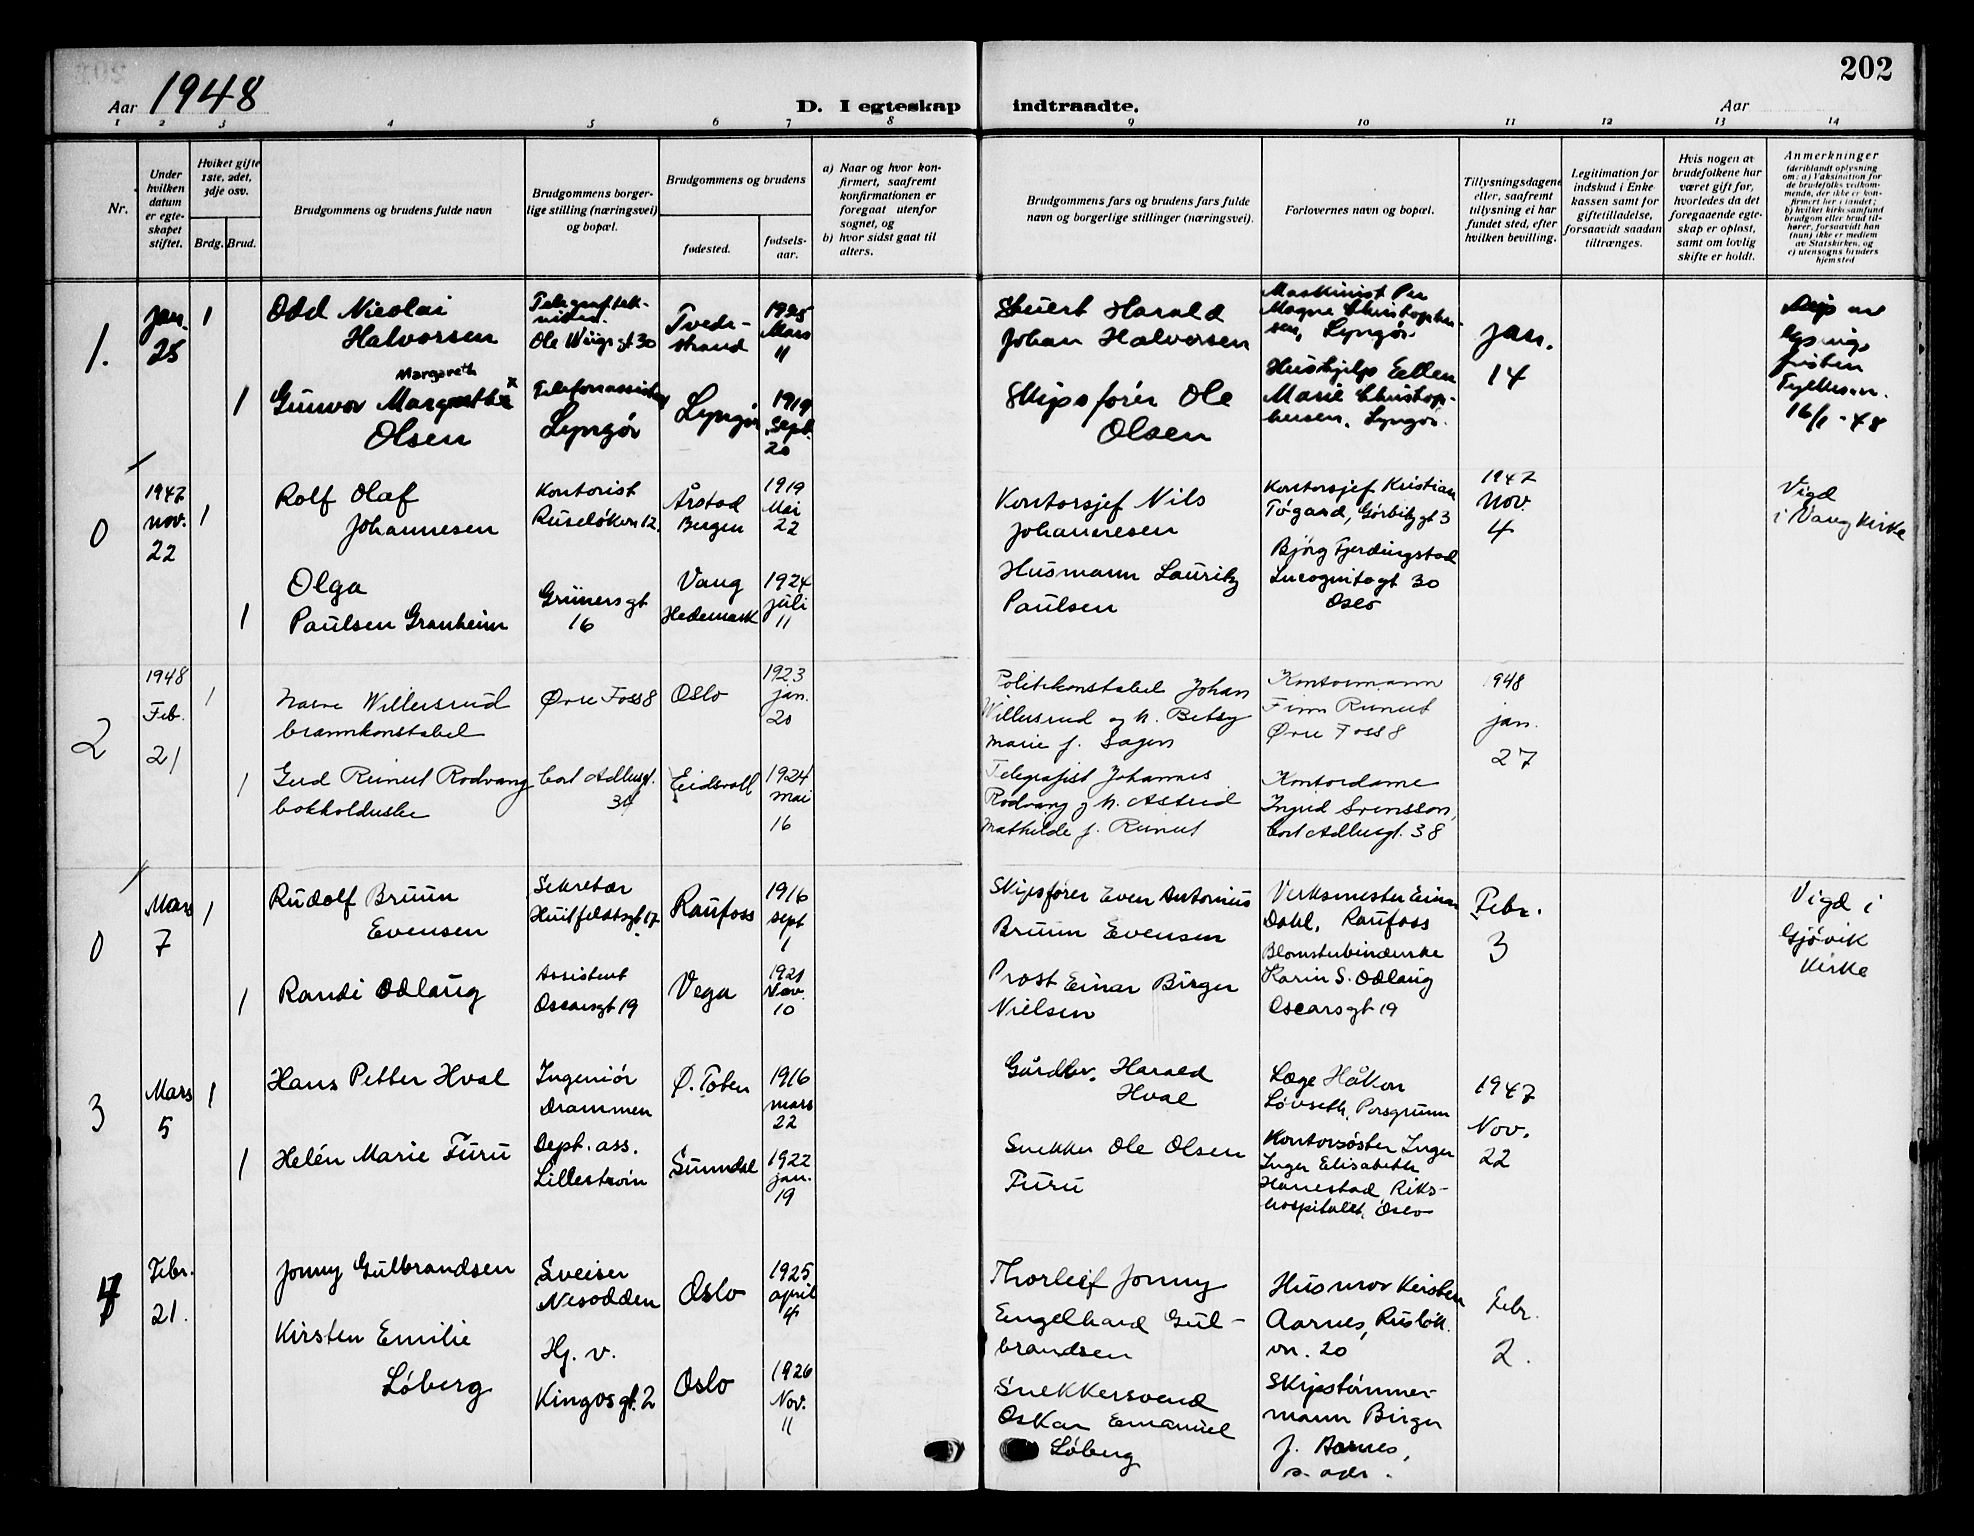 202
Aar 1948
D. I egteskap indtraadte.
Aar
1 2 3 4 5 6 7 8 9 10 11 12 13 14
Nr.
Under hvilken datum er egteskapet stiftet.
Hvilket gifte 1ste, 2det, 3dje osv.
Brdg. Brud.
Brudgommens og brudens fulde navn
Brudgommens borgerlige stilling (næringsvei) og bopæl.
Brudgommens og brudens
fødested.
fødselsaar.
a) Naar og hvor konfirmert, saafremt konfirmationen er foregaat utenfor sognet, og
b) hvor sidst gaat til alters.
Brudgommens fars og brudens fars fulde navn og borgerlige stillinger (næringsvei).
Forlovernes navn og bopæl.
Tillysningsdagene eller, saafremt tillysning ei har fundet sted, efter hvilken bevilling.
Legitimation for indskud i Enkekassen samt for giftetilladelse, forsaavidt saadan tiltrænges.
Hvis nogen av brudefolkene har været gift før, hvorledes da det foregaaende egteskap er opløst, samt om lovlig skifte er holdt.
Anmerkninger (deriblandt oplysning om: a) Vaksination for de brudefolks vedkommende, der ikke er konfirmert her i landet; b) hvilket kirkesamfund brudgom eller brud tilhører, forsaavidt han (hun) ikke er medlem av Statskirken, og c) utensogns bruders hjemsted
1.
Jan. 25
1
Odd Nicolai
Halvorsen
Ole Wiigs gt 30
Tvedestrand
1925
Mars
11
Sivert Harald
Johan Halvorsen
Maskinist Per
Magne Christophersen, Lyngør.
Jan.
14
fristen
Fylkesm.
16/1-48
1
Margareth
Gunvor Margrethe x
Olsen
Lyngør
Lyngør
1919
Sept.
20
Skipsfører Ole
Olsen
Hushjelp Ellen
Marie Christophersen, Lyngør.
0
1947
Nov.
22
1
Rolf Olaf
Johannesen
Kontorist
Ruseløkvn 12.
Årstad
Bergen
1919
Mai
22
Kontorsjef Nils
Johannesen
Kontorsjef Kristian
Tøgard, Gørbitz gt 3
1947
Nov.
4
Vigd
i Vang Kirke
1
Olga
Paulsen Granheim
Grünersgt
16
Vang
Hedemark
1924
juli
11
Husmann Lauritz
Paulsen
Bjørg Fjerdingstad
Incognitogt 30
Oslo
2
1948
Feb.
21
1
Willersrud
brannkonstabel
Øvre Foss 8
Oslo
1923
jan.
20
Politikonstabel Johan
Willersrud og h. Betsy
Marie f. Sagen
Kontormann
Finn Reinert
Øvre Foss 8
1948
jan.
27
1
Gerd Reinert Rodvang
bokholderske
Cort Adlersgt.
34
Eidsvoll
1924
mai
16
Telegrafist Johannes
Rodvang og h. Astrid
Mathilde f. Reinert
Kontordame
Ingrid Svensson,
Cort Adlersgt. 38
0
Mars
7
1
Rudolf Bruun
Evensen
Sekretær
Huitfeldtsgt 17
Raufoss
1916
sept
1
Skipsfører Even Antonius
Bruun Evensen
Verksmester Einar
Dahl, Raufoss
Febr.
3
Vigd i
Gjøvik
Kirke
1
Randi Odlaug
Assistent
Oscarsgt 19
Vega
1921
Nov.
10
Prost Einar Birger
Nielsen
Blomsterbinderske
Karin S. Odlaug
Oscarsgt 19
3
Mars
5
1
Hans Petter Hval
Ingeniør
Drammen
Ø. Toten
1916
mars
22
Gårdbr. Harald
Hval
Læge Håkon
Løvseth, Porsgrunn
1947
Nov.
22
1
Helén Marie Furu
Dept. ass.
Lillestrøm
Sunndal
1922
jan.
19
Snekker Ole Olsen
Furu
Kontorsøster Inger
Inger Elisabeth
Hanestad, Rikshospitalet, Oslo
4
Febr.
21.
Jonny Gulbrandsen
Sveiser
Nesodden
Oslo
1925
april
4
Thorleif Jonny
Engelhard Gulbrandsen
Husmor Kirsten
Aarnes, Rusløkvn. 20
Febr.
2.
Kirsten Emilie
Løberg
Hj. v.
Kingosgt. 2
Oslo
1926
Nov.
11
Snekkersvend
Oskar Emanuel
Løberg
Skipstømmermann Birger
J. Aarnes,
s. adr.